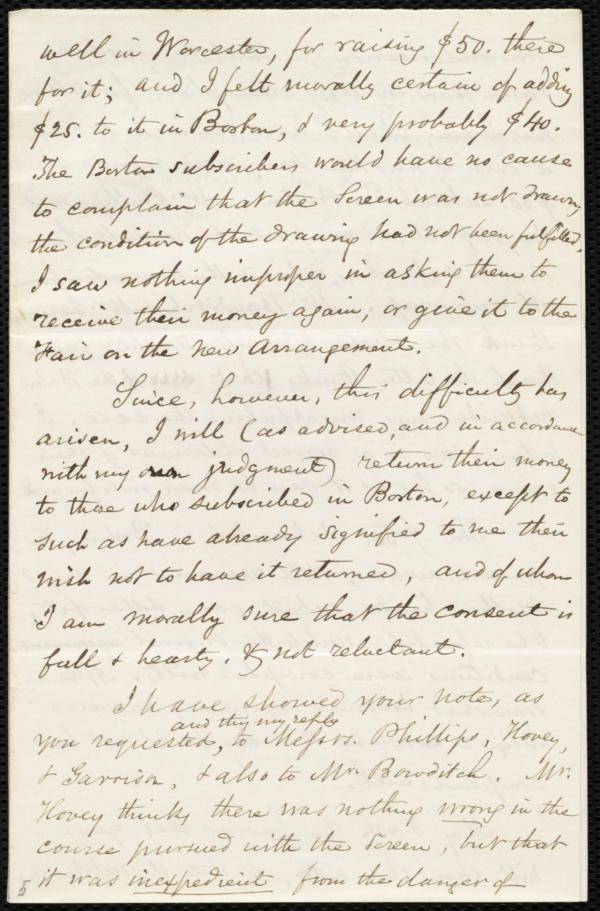 well in Worcester, for raising $50. there
for it; and I felt morally certain of adding
$25. to it in Boston, & very probably $40.
The Boston subscribers would have no cause
to complain that the Screen was not drawn,
the condition of the drawing had not been fulfilled.
I saw nothing improper, in asking them to
receive their money again, or give it to the
Fair on the new arrangement.
Since, however, this difficulty has
arisen, I will (as advised, and in accordance
with my own judgment) return their money
to those who subscribed in Boston, except to
such as have already signified to me their
wish not to have it returned, and of whom
I am morally sure that the consent is
full & hearty, & not reluctant.
I have showed your note, as
and this my reply
you requested, to Messrs. Phillips, Hovey,
& Garrison, & also to Mr. Bowditch. Mr.
Hovey thinks there was nothing wrong in the
course pursued with the Screen, but that
it was inexpedient from the danger of